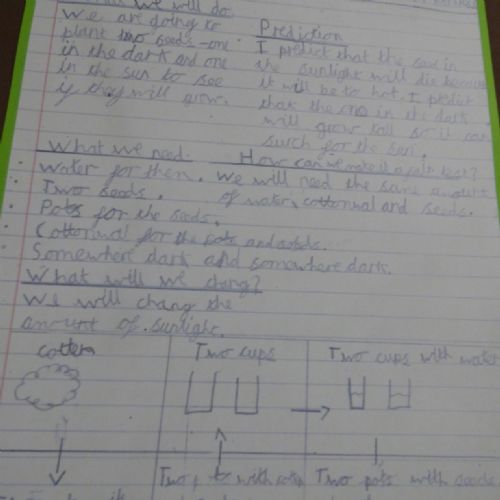 we will do.
We are going to
plant two seeds - one
in the dark and one
in the sun to see
if they will grow.
Prediction
I predict that the seed in
the sunlight will die because
it will be to hot. I predict
that the one in the dark
will grow tall so it can
surch for the sun.
What we need.
How can we make it a fair test?
• Water for them.
We will need the same amount
• Two seeds.
of water, cottonwal and seeds.
• Pots for the seeds.
• Cottonwal for the pots and
• Somewhere dark and somewhere dark.
What will we chang?
We will chang the
amount of sunlight.
cotten
Two cups
Two cups with water
Two with
Two pots with seeds